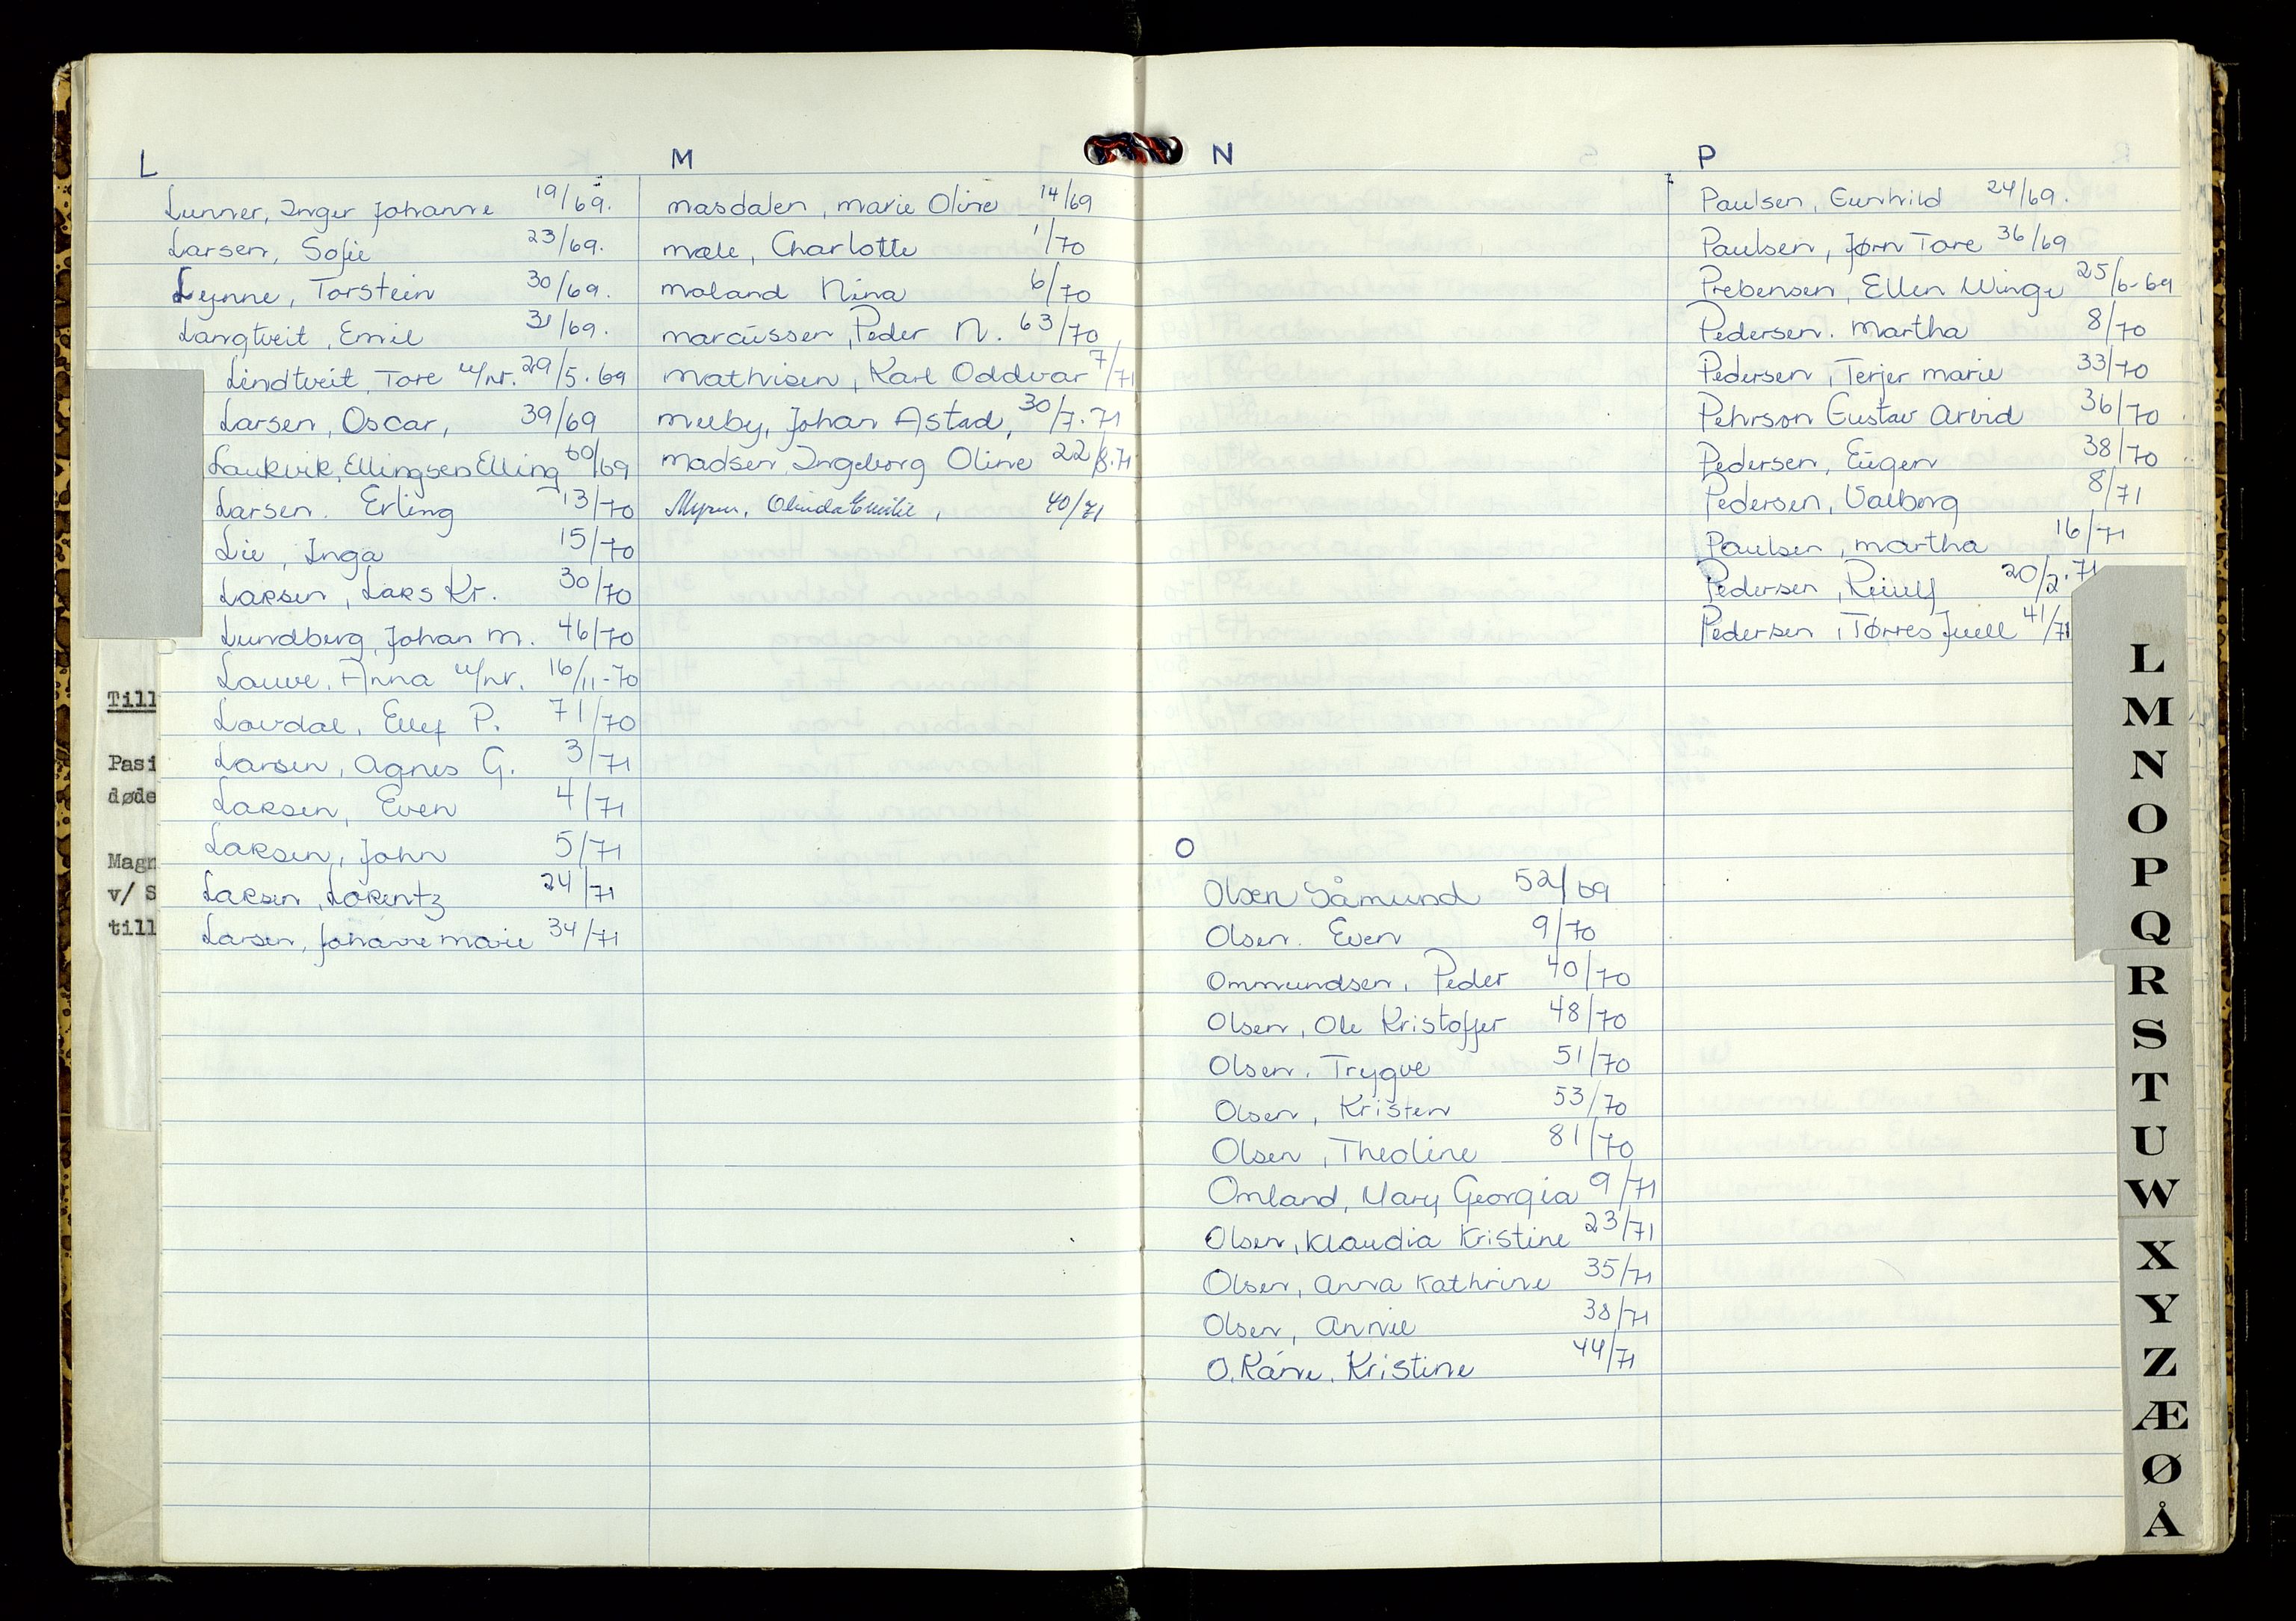 L
Lunner, Inger Johanne 19/69.
Larsen, Sofie 23/69.
Lynne, Torstein 30/69.
Langtveit, Emil 31/69.
Lindtveit, Tore u/nr. 29/5.69
Larsen, Oscar, 39/69
Laukvik, Ellingsen Elling 60/69
Larsen. Erling 13/70
Lie, Inga 15/70
Larsen, Lars Kr. 30/70
Lundberg, Johan M. 46/70
Lauve, Anna u/nr. 16/11-70
Lovdal, Ellef P. 71/70
Larsen, Agnes G. 3/71
Larsen, Even 4/71
Larsen, John 5/71
Larsen, Lorentz 24/71
Larsen, Johanne Marie 34/71
Till
Pasi
døde
Magn
v/ S
till
M
Masdalen, Marie Oline 14/69
Mæle, Charlotte 1/70
Moland Nina 6/70
Marcussen, Peder N. 63/70
Mathisen, Karl Oddvar 7/71
Melby, Johan Astad, 30/7.71
Madsen, Ingeborg Oline 22/8.71
Myren, Olinda Emilie, 40/71
N
O
Olsen Såmund 52/69
Olsen. Even 9/70
Ommundsen, Peder 40/70
Olsen, Ole Kristoffer 48/70
Olsen, Trygve 51/70
Olsen, Kristen 53/70
Olsen, Theoline 81/70
Omland, Mary Georgia 9/71
Olsen, Klaudia Kristine 23/71
Olsen, Anna Kathrine 35/71
Olsen, Annie 38/71
O.Káne, Kristine 44/71
P
Paulsen, Gunhild 24/69.
Paulsen, Jørn Tore 36/69
Prebensen, Ellen Winge 25/6-69
Pedersen. Martha 8/70
Pedersen, Terjer Marie 33/70
Pehrson Gustav Arvid 36/70
Pedersen, Eugen 38/70
Pedersen, Valborg 8/71
Paulsen, Martha 16/71
Pedersen, Reiulf 20/2.71
Pedersen, Tørres Juell 41/71
L
M
N
O
P
Q
R
S
T
U
W
X
Y
Z
Æ
Ø
Å